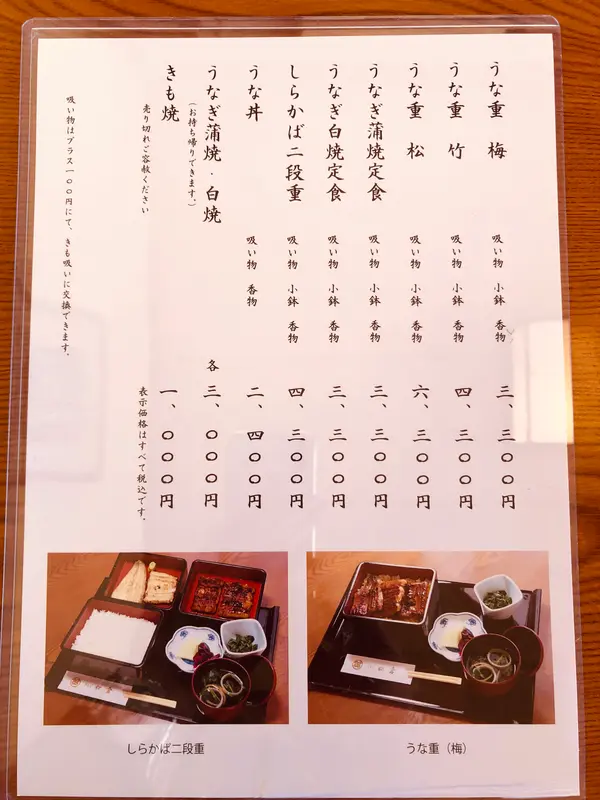 うな重 梅 吸い物 小鉢 香物 三、三〇〇円
うな重 竹 吸い物 小鉢 香物 四、三〇〇円
うな重 松 吸い物 小鉢 香物 六、三〇〇円
うなぎ蒲焼定食 吸い物 小鉢 香物 三、三〇〇円
うなぎ白焼定食 吸い物 小鉢 香物 三、三〇〇円
しらかば二段重 吸い物 小鉢 香物 四、三〇〇円
うな丼 吸い物 香物 二、四〇〇円
うなぎ蒲焼・白焼 各 三、〇〇〇円
（お持ち帰りできます。）
きも焼 一、〇〇〇円
売り切れご容赦ください
表示価格はすべて税込です。
吸い物はプラス一〇〇円にて、きも吸いに交換できます。
しらかば二段重
うな重（梅）